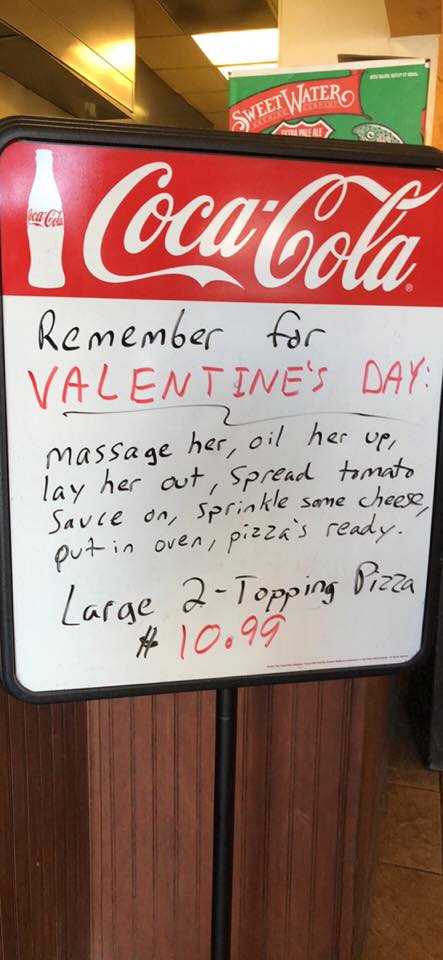 SWEETWATER
BREWING COMPANY
EXTRA PALE ALE
Coca-Cola
Coca-Cola
Remember for
VALENTINE'S DAY:
massage her, oil her up,
lay her out, spread tomato
sauce on, sprinkle some cheese,
put in oven, pizza's ready.
Large 2-Topping Pizza
$ 10.99